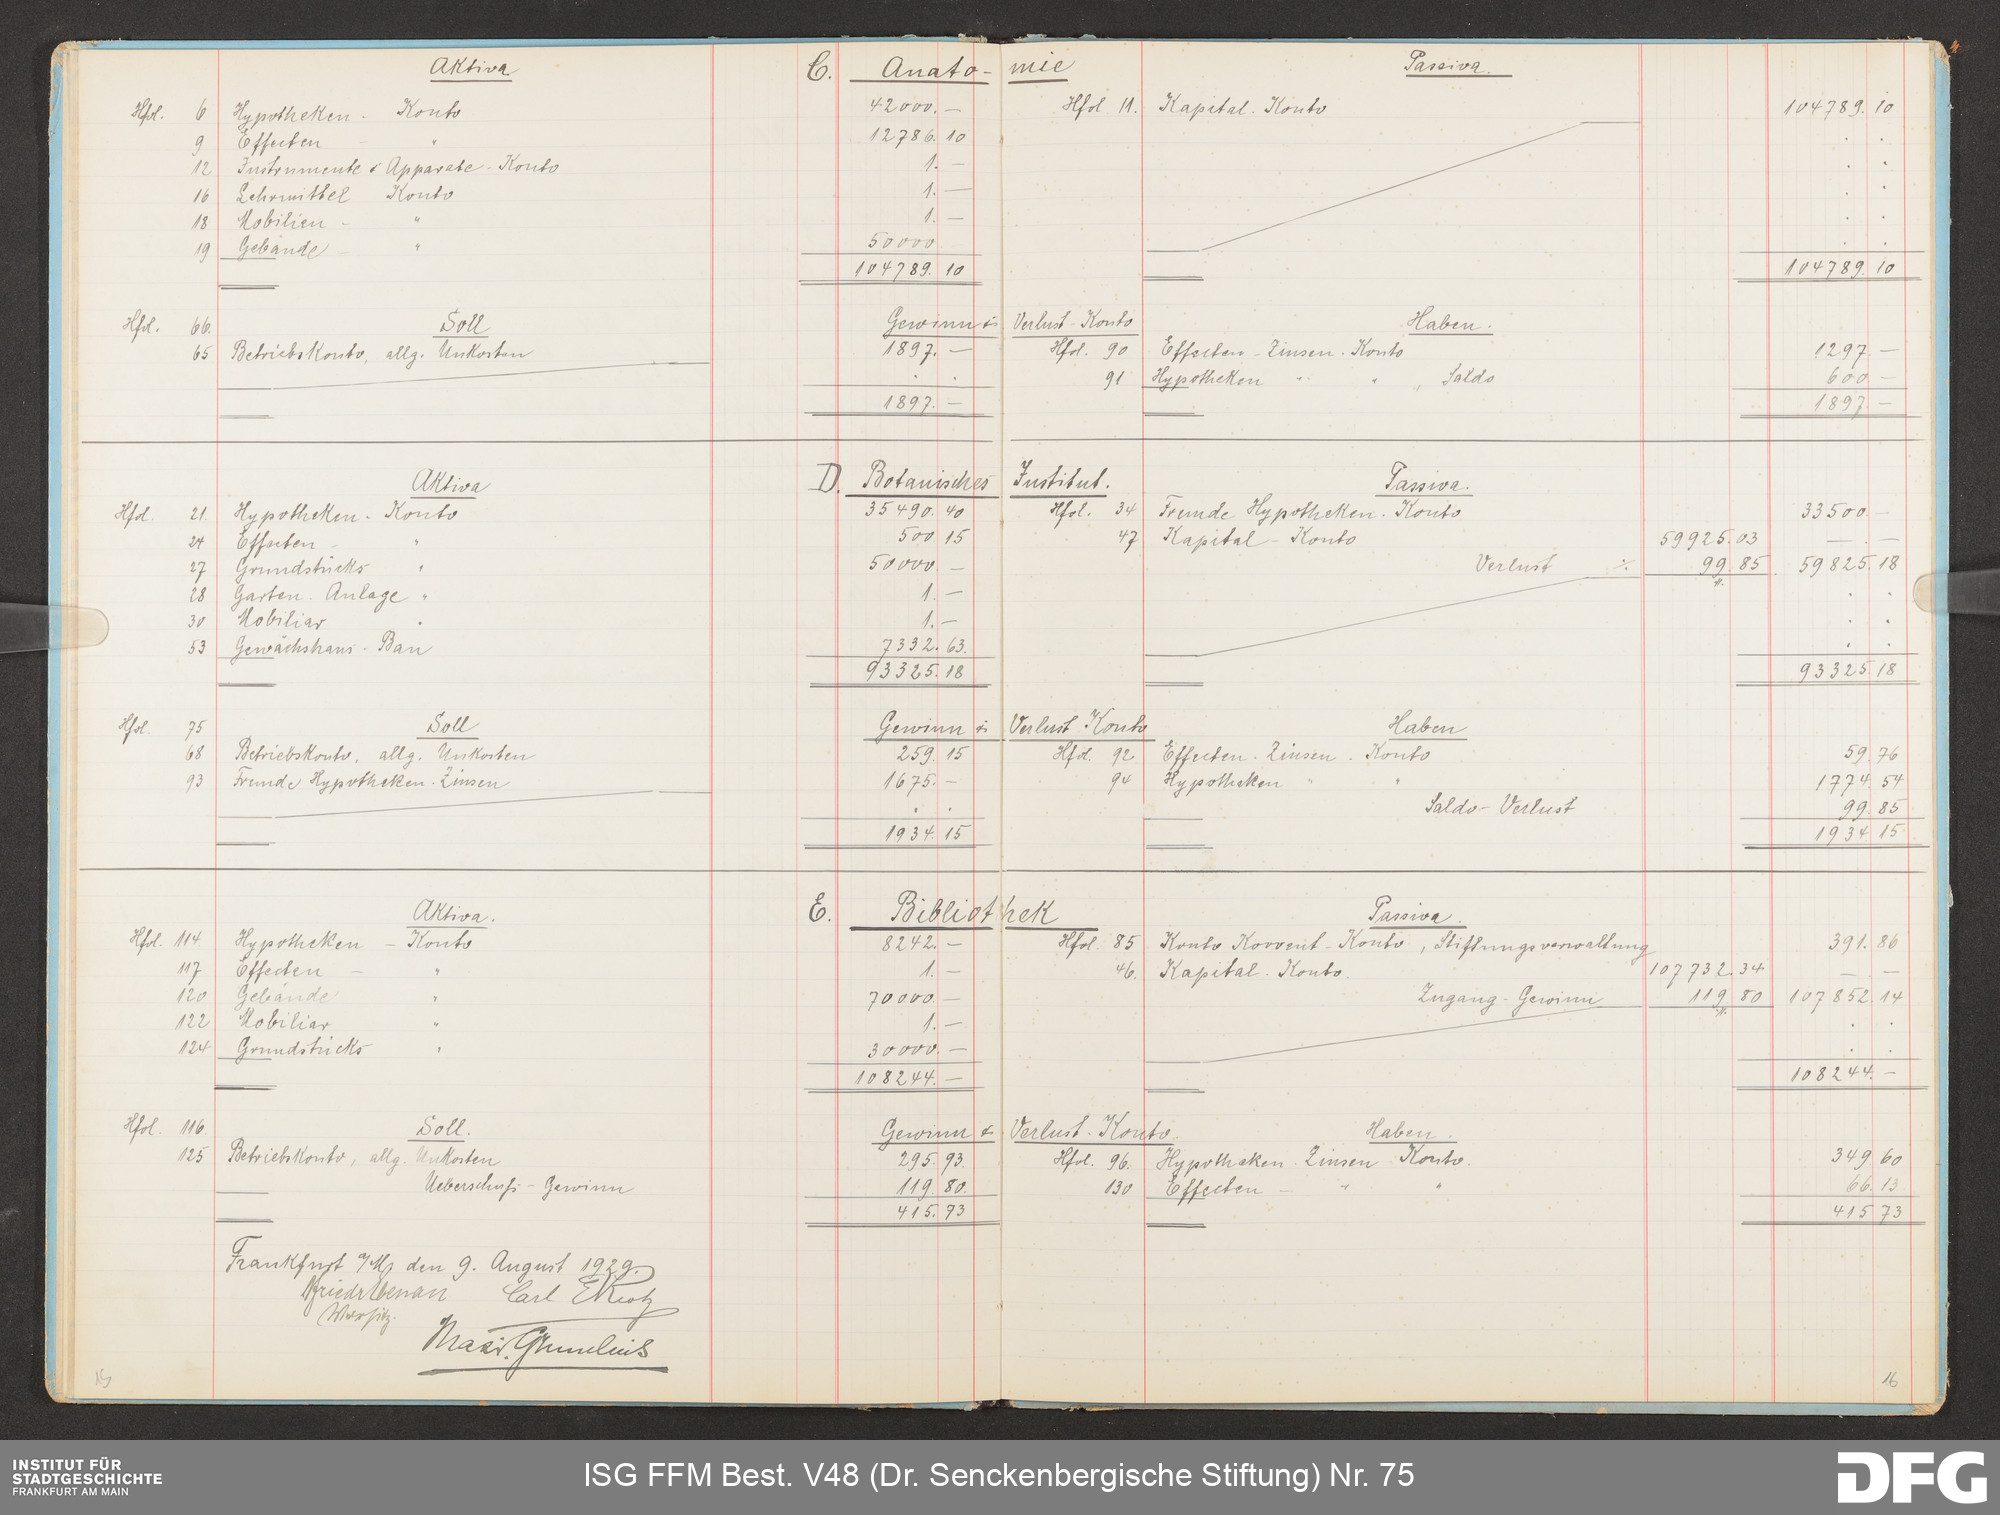 Aktiva C. Anato- mie Passiva.
Hfol. 6 Hypotheken - Konto 42000. — Hfol 11. Kapital - Konto 104789. 10
9 Effecten " 12786. 10
12 Instrumente & Apparate - Konto 1. —
16 Lehrmittel Konto 1. —
18 Mobilien - " 1. —
19 Gebäude - " 50000
104789. 10 104789. 10
Hfol. 66. Soll Gewinn & Verlust - Konto Haben.
65 Betriebskonto, allg. Unkosten 1897. — Hfol. 90 Effecten - Zinsen - Konto 1297 —
91 Hypotheken " " , Saldo 600 —
1897. — 1897 —
Aktiva D. Botanisches Institut. Passiva.
Hfol. 21 Hypotheken - Konto 35490. 40 Hfol. 34 Fremde Hypotheken - Konto 33500 —
24 Effecten - " 500 15 47 Kapital - Konto 59925. 03 — —
27 Grundstücks " 50000 — Verlust ./. 99. 85 59825. 18
28 Garten - Anlage " 1. —
30 Mobiliar " 1. —
53 Gewächshaus - Bau 7332. 63.
93325. 18 93325 18
Hfol. 75 Soll Gewinn & Verlust - Konto Haben
68 Betriebskonto, allg. Unkosten 259. 15 Hfol. 92 Effecten - Zinsen - Konto 59. 76
93 Fremde Hypotheken - Zinsen 1675. — 94 Hypotheken " " 1774. 54
Saldo - Verlust 99. 85
1934. 15 1934. 15
Aktiva. E. Bibliothek Passiva.
Hfol. 114. Hypotheken - Konto 8242. — Hfol. 85 Konto Korrent - Konto, Stiftungsverwaltung 391. 86
117 Effecten - " 1. — 46. Kapital - Konto. 107732. 34 — —
120 Gebäude " 70000 — Zugang - Gewinn 119 80 107852. 14
122 Mobiliar " 1. —
124 Grundstücks " 30000. —
108244. — 108244. —
Hfol. 116. Soll. Gewinn & Verlust - Konto. Haben.
125 Betriebskonto, allg. Unkosten 295. 93. Hfol. 96. Hypotheken - Zinsen - Konto. 349 60
Ueberschuß - Gewinn 119 80. 130 Effecten - " " 66. 13
415. 73 415 73
Frankfurt a/M, den 9. August 1929.
Carl
15 16
INSTITUT FÜR
STADTGESCHICHTE
FRANKFURT AM MAIN
ISG FFM Best. V48 (Dr. Senckenbergische Stiftung) Nr. 75
DFG